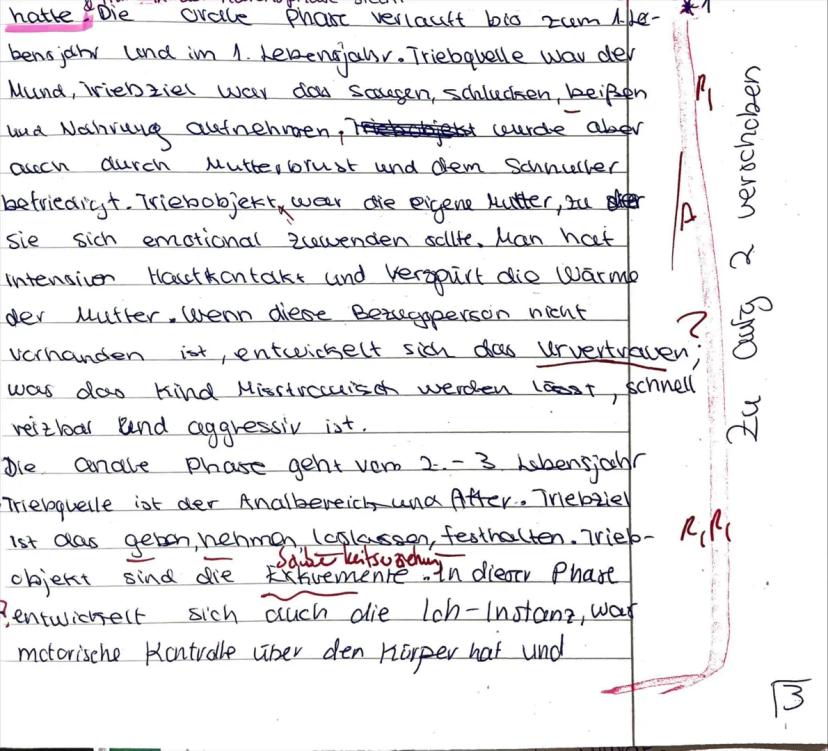 hatte. Die orale Phase verläuft bis zum 1. Le-
bensjahr und im 1. Lebensjahr. Triebquelle war der
Mund, Triebziel war das Saugen, schlucken, beißen
und Nahrung aufnehmen, Triebobjekt wurde aber
auch durch Mutterbrust und dem Schnuller
befriedigt. Triebobjekt, war die eigene Mutter, zu der
sie sich emotional zuwenden sollte. Man hat
intensiven Hautkontakt und verspürt die Wärme
der Mutter. Wenn diese Bezugsperson nicht
vorhanden ist, entwickelt sich das Urvertrauen,
was das Kind Misstrauisch werden lässt, schnell
reizbar und aggressiv ist.
Die anale Phase geht vom 2. - 3. Lebensjahr
Triebquelle ist der Analbereich und After. Triebziel
ist das geben, nehmen, loslassen, festhalten. Trieb-
Sauberkeitserziehung
objekt sind die Exkremente. In dieser Phase
entwickelt sich auch die Ich-Instanz, was
motorische Kontrolle über den Körper hat und
*1
R,
A
?
R, R,
Zu Aufg 2 verschoben
3